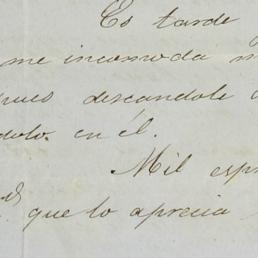 Es tarde
me incomoda
pues deseandole
dolo en él.
Mil espr
que lo aprecia